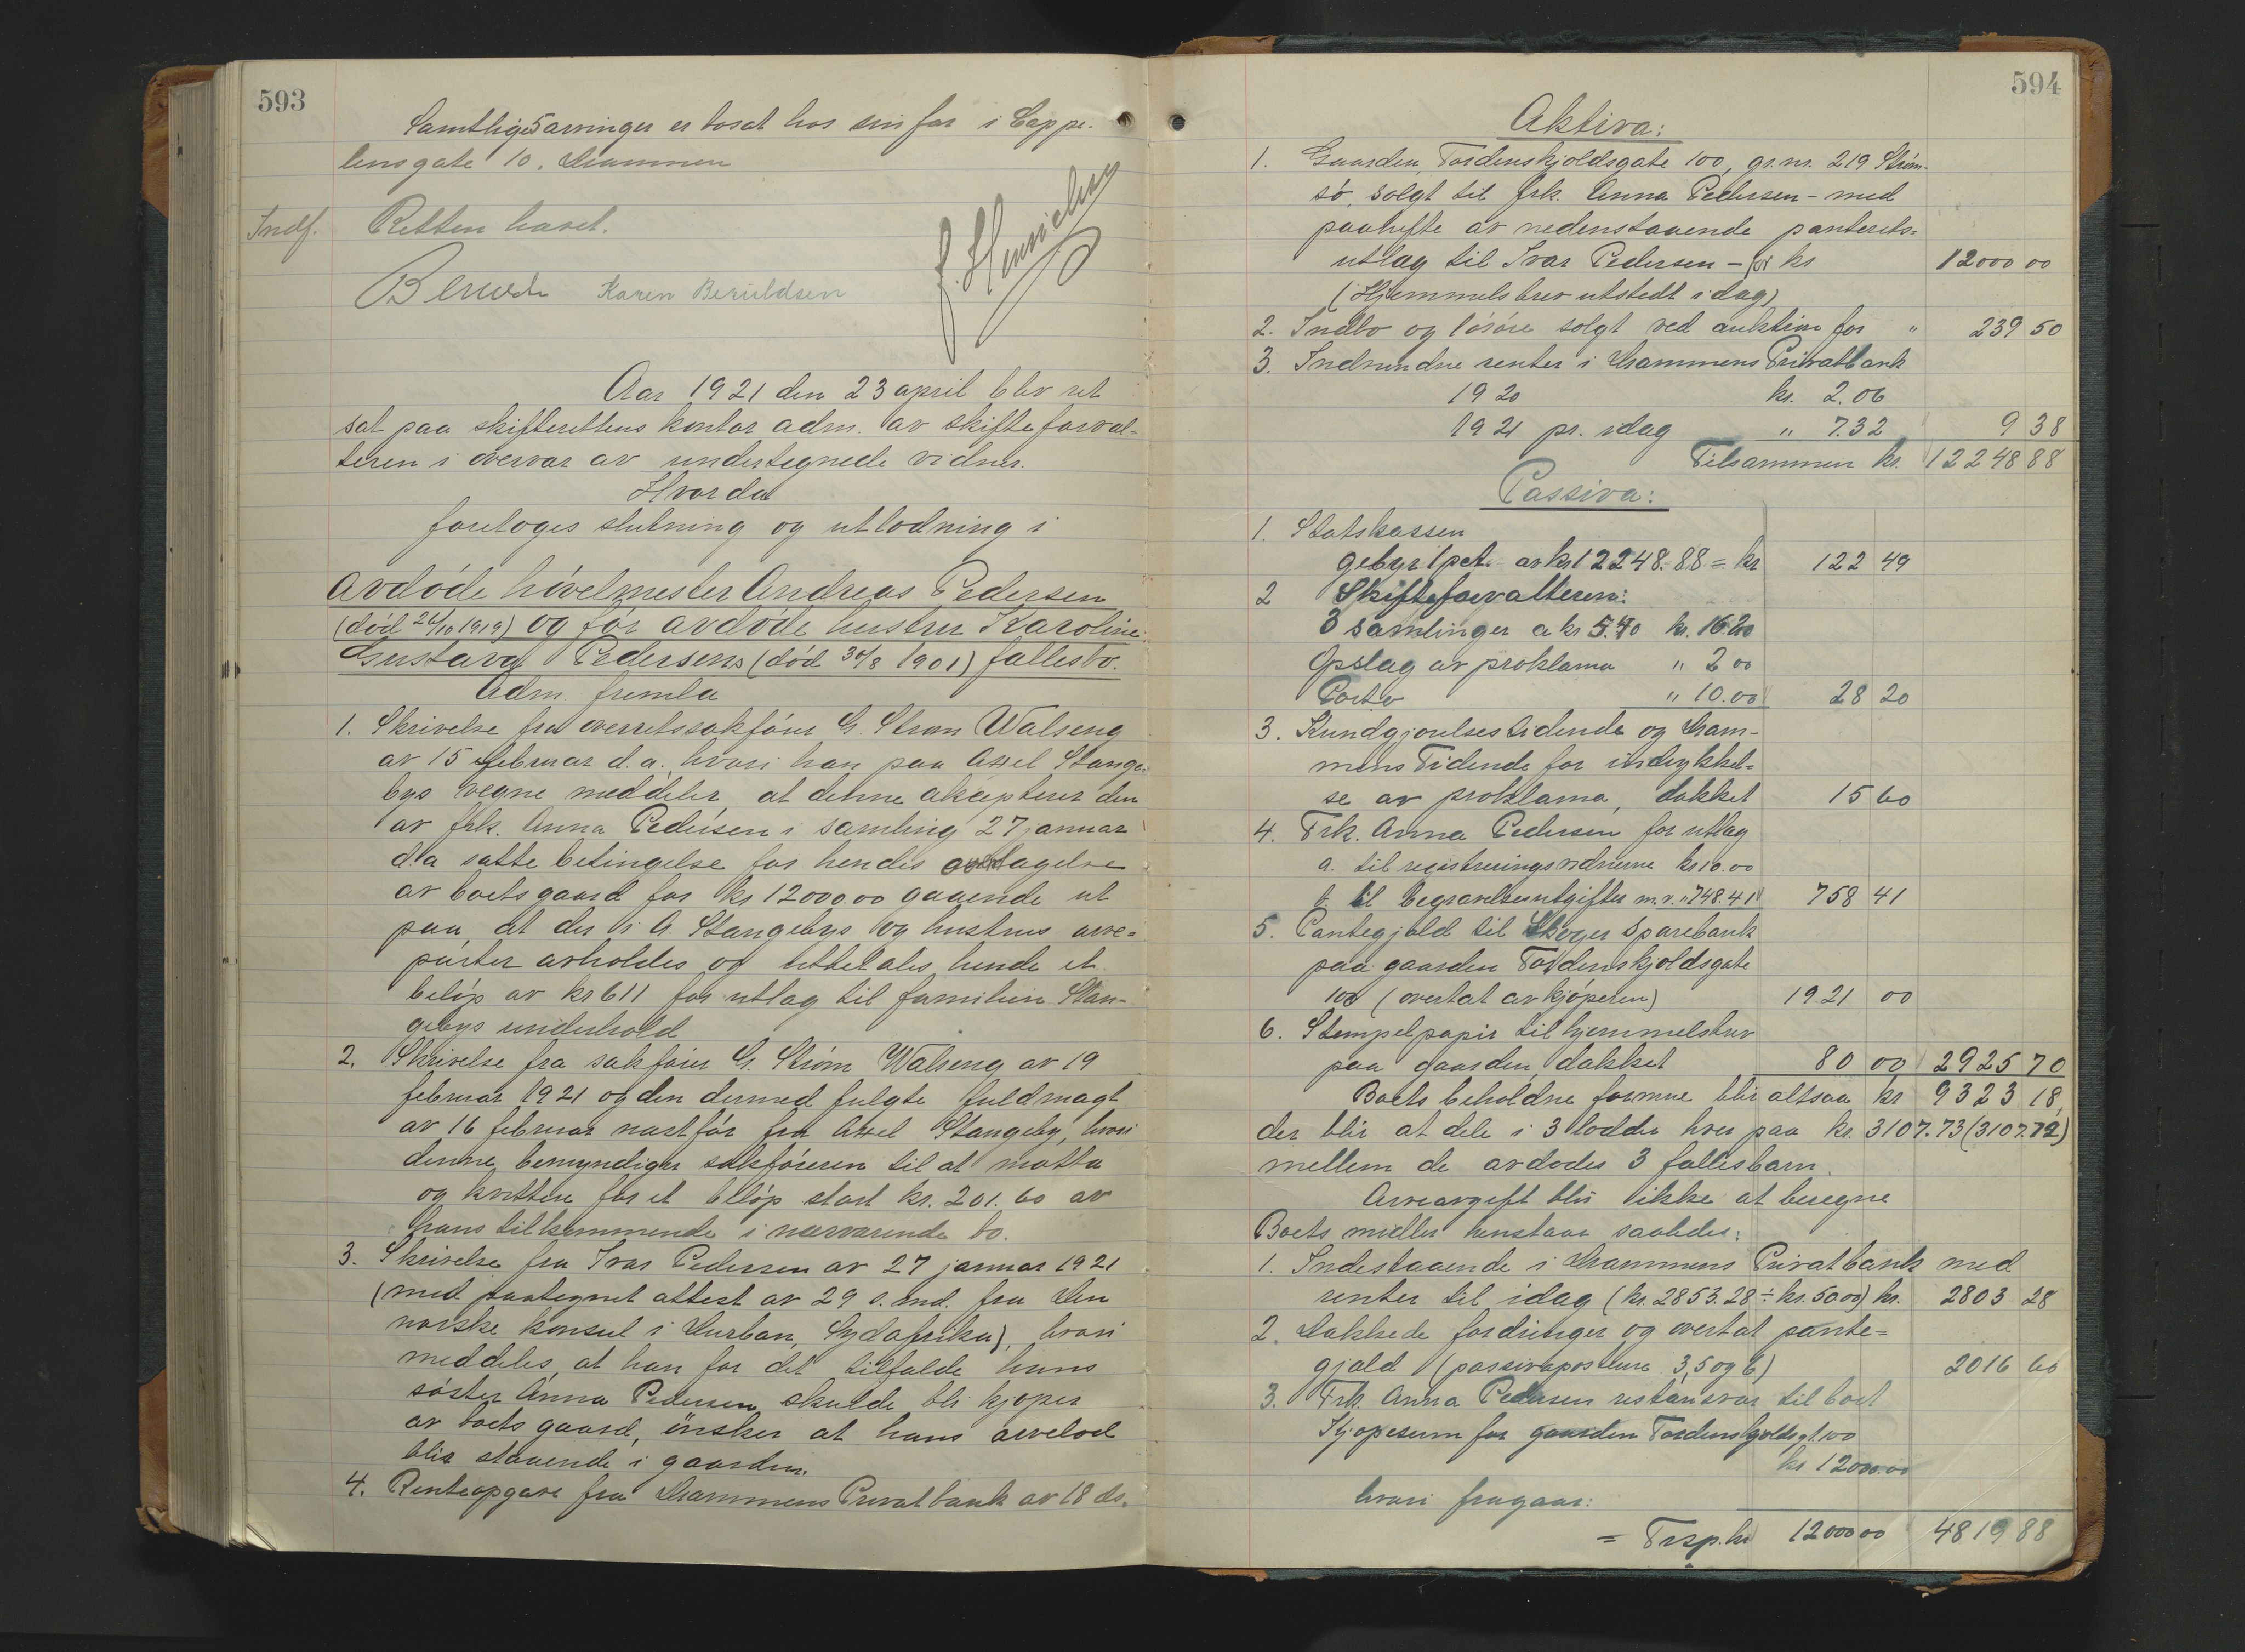 593
Samtlige 5 arvinger er bosat hos sin far i Cappe-
lensgate 10, Drammen
Indf. Retten hævet.
Karen Beruldsen
Aar 1921 den 23 april blev ret
sat paa skifterettens kontor adm. av skifteforval-
teren i overvær av undertegnede vidner.
Hvorda
foretoges slutning og utlodning i
avdöde hövelmester Andreas Pedersen
(död 1919) og för avdöde hustru Karoline
Gustava Pedersens (död 30/8 1901) fællesbo.
Adm. fremla
1. Skrivelse fra overretssakförer G. Ström Walseng
av 15 februar d.a. hvori han paa Axel Stange-
bys vegne meddeler, at denne aksepterer den
av frk. Anna Pedersen i samling 27 januar
d.a satte betingelse for hendes overtagelse
av boets gaard for kr 12000.00 gaaende ut
paa, at der i A. Stangebys og hustrus arve-
parter avholdes og utbetales hende et
belöp av kr 611 for utlæg til familien Stan-
gebys underhold
2. Skrivelse fra sakförer G. Ström Walseng av 19
februar 1921 og den dermed fulgte fuldmagt
av 16 februar næstför fra Axel Stangeby, hvori
denne bemyndiger sakföreren til at motta
og kvittere for et belöp stort kr. 201.60 av
hans tilkommende i nærværende bo.
3. Skrivelse fra Ivar Pedersen av 27 januar 1921
(med paategnet attest av 29 s. md. fra den
norske konsul i Durban, Sydafrika), hvori
meddeles, at han for det tilfælde hans
söster Anna Pedersen skulde bli kjöper
av boets gaard, önsker at hans arvelod
blir staaende i gaarden.
4. Renteopgave fra Drammens Privatbank av 18 ds.
594
Aktiva:
1. Gaarden Tordenskjoldsgate 100, gr.nr. 219 Ström-
sö, solgt til frk. Anna Pedersen - med
paahefte av nedenstaaende panterets-
utlæg til Ivar Pedersen - for kr 12000 00
(Hjemmelsbrev utstedt idag)
2. Indbo og lösöre solgt ved auktion for " 239 50
3. Indvundne renter i Drammens Privatbank
1920 kr. 2.06
1921 pr. idag " 7.32 9 38
Tilsammen kr. 12248 88
Passiva:
1. Statskassen
gebyr 1 pct. av kr 12248.88 = kr 122 49
2 Skifteforvalteren:
3 samlinger a kr 5.40 kr. 16.20
Opslag av proklama " 2 00
Porto " 10.00 28 20
3. Kundgjörelsestidende og Dram-
mens Tidende for indrykkel-
se av proklama, dækket 15 60
4. Frk. Anna Pedersen for utlæg
a. til registreringsvidnerne kr 10.00
b til begravelsesutgifter m.v. " 748.41 758 41
5. Pantegjæld til Skoger Sparebank
paa gaarden Tordenskjoldsgate
100 (overtat av kjöperen) 1921 00
6. Stempelpapir til hjemmelsbrev
paa gaarden, dækket 80 00 2925 70
Boets beholdne formue blir altsaa kr 9323 18,
der blir at dele i 3 lodder hver paa kr. 3107.73 (3107.72)
mellem de avdödes 3 fællesbarn.
Arveavgift blir ikke at beregne
Boets midler henstaar saaledes:
1. Indestaaende i Drammens Privatbank med
renter til idag (kr. 2853.28 ÷ kr. 50.00) kr. 2803 28
2. Dækkede fordringer og overtat pante-
gjæld (passivaposterne 3, 5 og 6) 2016 60
3. Frk. Anna Pedersen restansvar til boet
Kjöpesum for gaarden Tordenskjoldsgt. 100
kr 12000.00
hvori fragaar:
= Trsp. kr 12000 00 4819 88